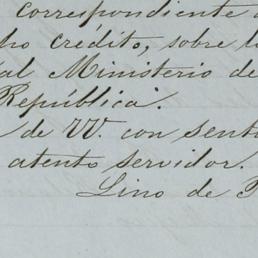 correspondiente
ho crédito, sobre l
al Ministerio de
República.
de VV. con sent
atento servidor.
Lino de P